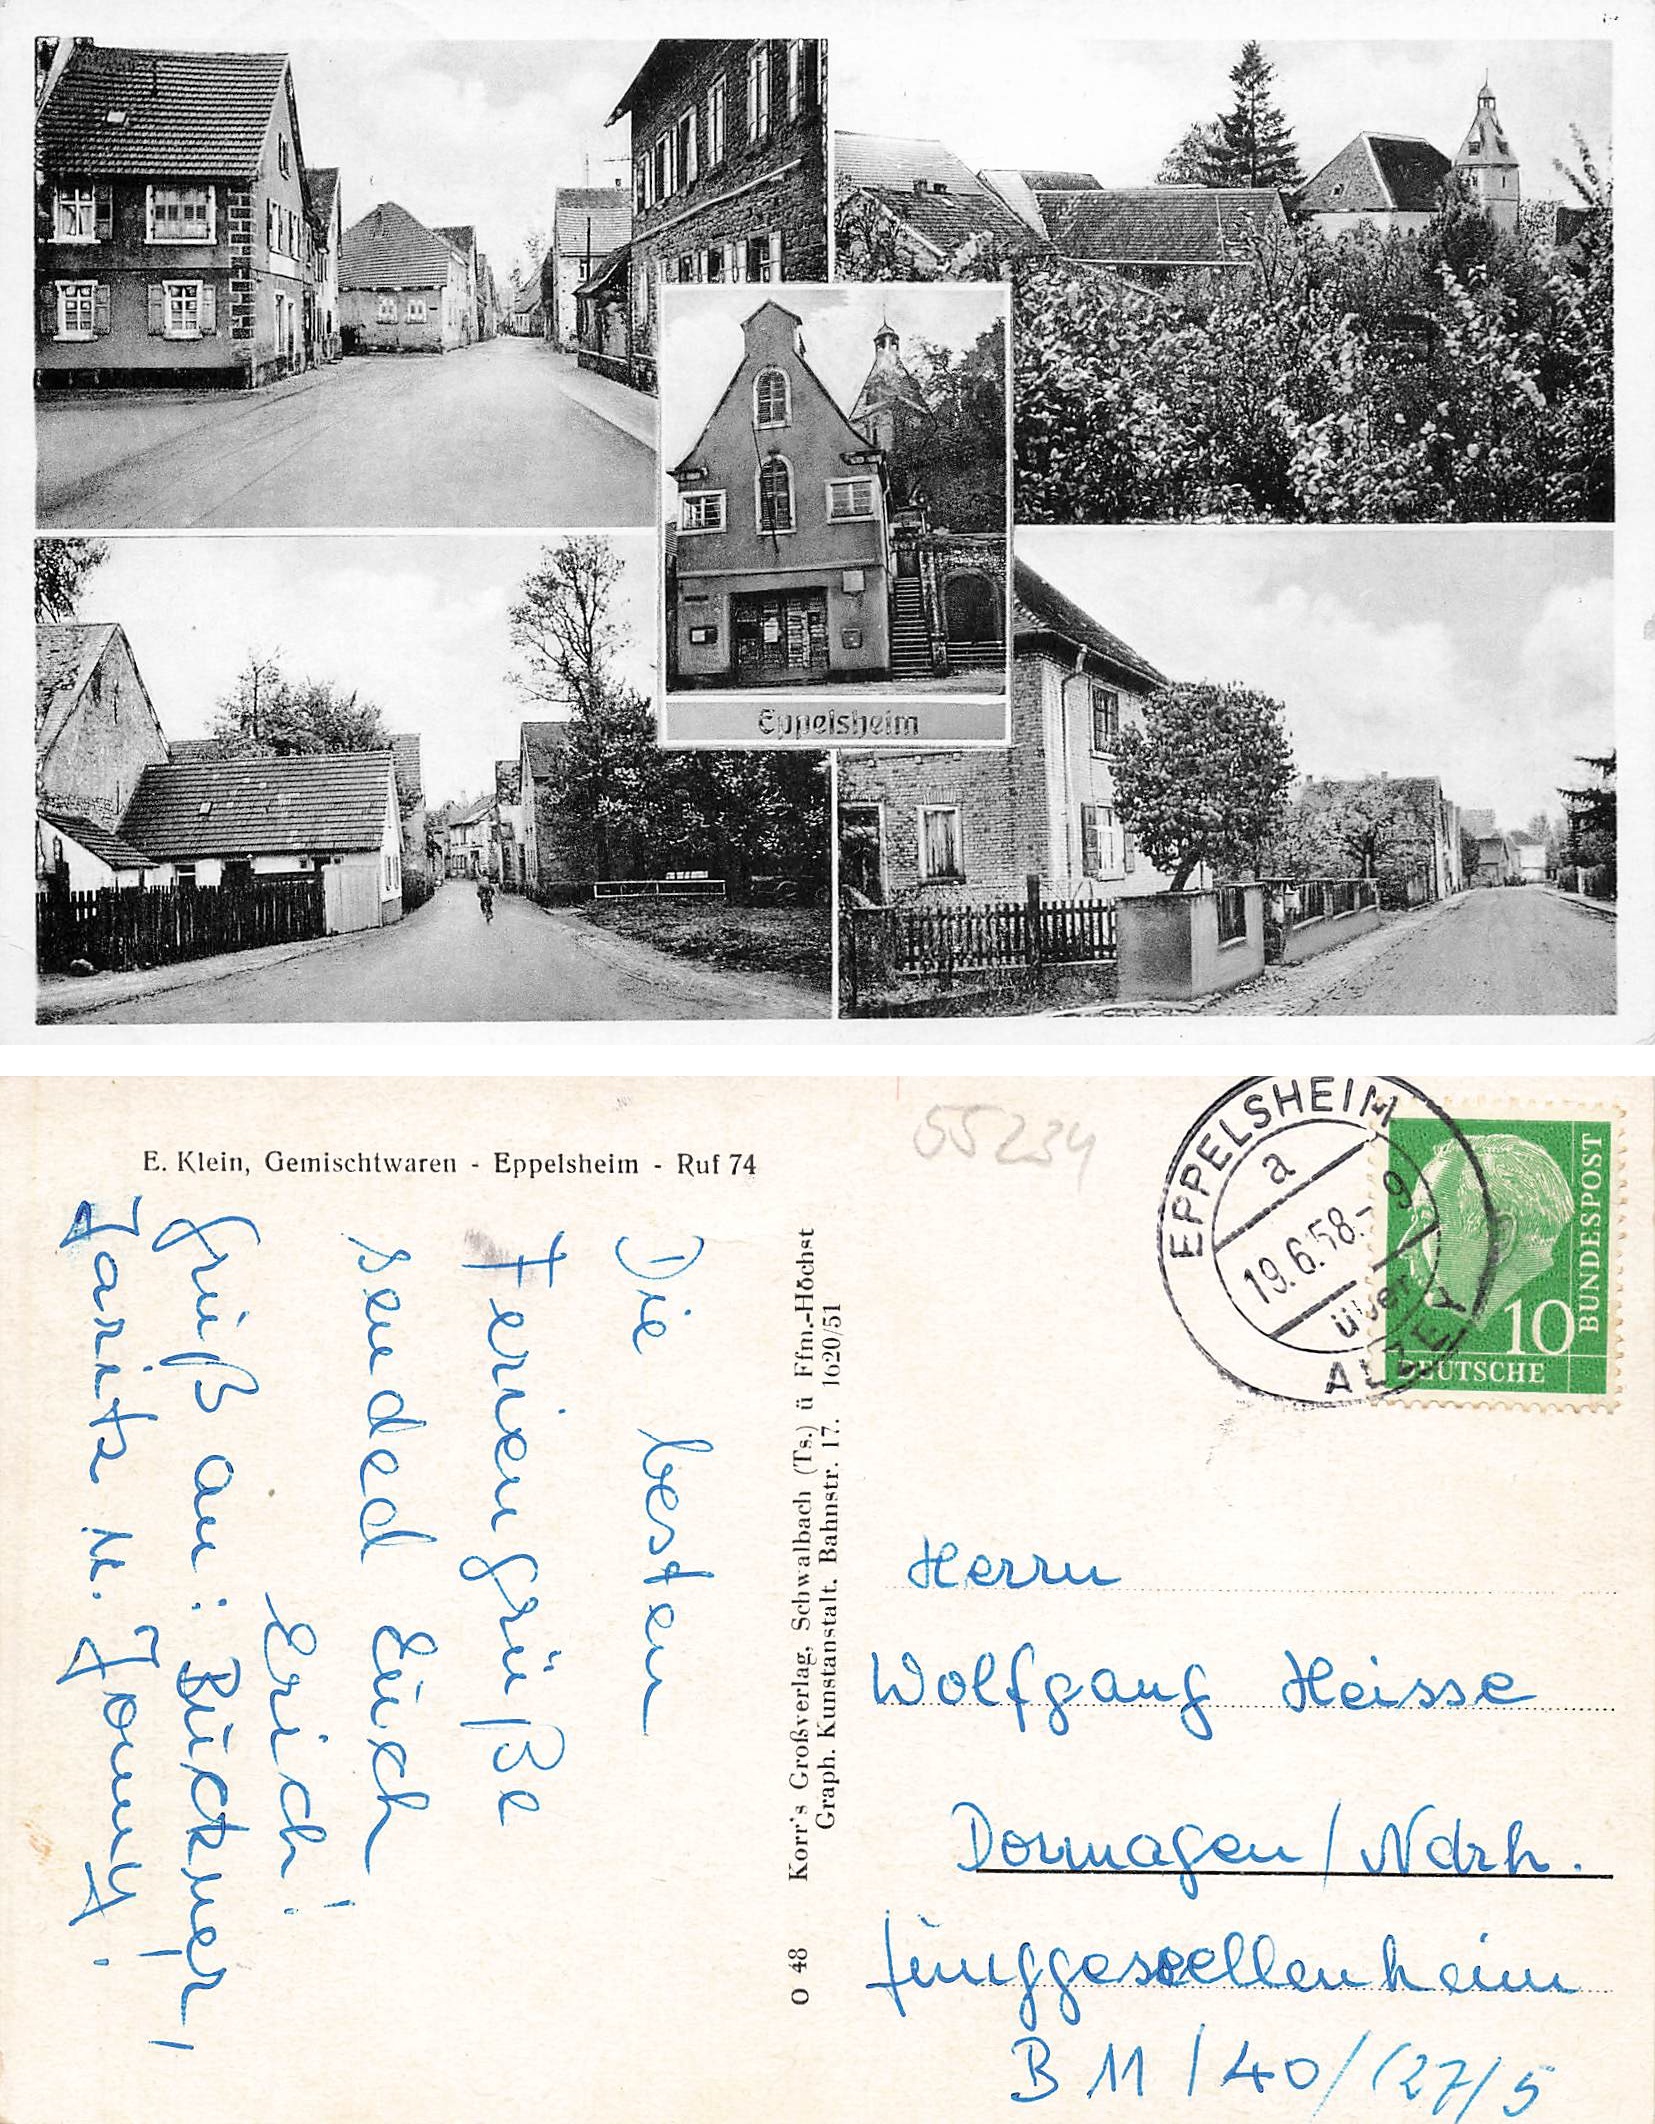 Eppelsheim
E. Klein, Gemischtwaren - Eppelsheim - Ruf 74
55234
EPPELSHEIM
a
19.6.58.- 9
über
ALZEY
10
DEUTSCHE
BUNDESPOST
Die besten
Feriengrüße
sended Euch
Erich!
Gruß an: Bückner,
Jaritz u. Jonny.
Korr's Großverlag, Schwalbach (Ts.) ü Ffm.-Höchst
Graph. Kunstanstalt. Bahnstr. 17. 1620/51
O 48
Herrn
Wolfgang Heisse
Dormagen / Ndrh.
Junggesellenheim
B 11 / 40 / (27/5